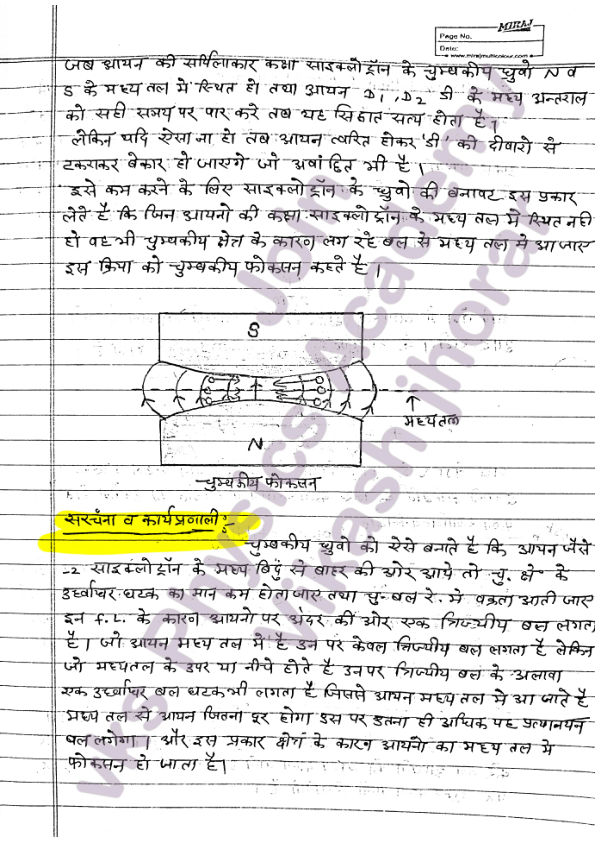 MIRAJ
Page No.
Date:
www.mirajmulticolour.com
जब आयन की सर्पिलाकार कक्षा साइक्लोट्रॉन के चुम्बकीय ध्रुवो N व
S के मध्य तल मे स्थित हो तथा आयन D1, D2 डी के मध्य अन्तराल
को सही समय पर पार करे तब यह सिद्वात सत्य होता है।
लेकिन यदि ऐसा ना हो तब आयन त्वरित होकर 'डी' की दीवारो से
टकराकर बेकार हो जाएगे जो अवांछित भी है।
इसे कम करने के लिए साइक्लोट्रॉन के ध्रुवो की बनावट इस प्रकार
लेते है कि जिन आयनो की कक्षा साइक्लोट्रॉन के मध्य तल मे स्थित नही
हो वह भी चुम्बकीय क्षेत्र के कारण लग रहे बल से मध्य तल मे आ जाए
इस क्रिया को चुम्बकीय फोकसन कहते है।
S
मध्य तल
N
चुम्बकीय फोकसन
सरचंना व कार्यप्रणाली:-
चुम्बकीय ध्रुवो को ऐसे बनाते है कि आयन जैसे
-2 साइक्लोट्रॉन के मध्य बिंदु से बाहर की ओर आये तो चु. क्षे. के
उर्ध्वाधर घटक का मान कम होता जाए तथा चु. बल रे. मे वक्रता आती जाए
इन f.L. के कारण आयनो पर अंदर की ओर एक त्रिज्यीय बल लगता
है। जो आयन मध्य तल मे है उन पर केवल त्रिज्यीय बल लगता है लेकिन
जो मध्यतल के उपर या नीचे होते है उनपर त्रिज्यीय बल के अलावा
एक उर्ध्वाधर बल घटक भी लगता है जिससे आयन मध्य तल मे आ जाते है
मध्य तल से आयन जितना दूर होगा उस पर उतना ही अधिक यह प्रत्यानयन
बल लगेगा। और इस प्रकार क्षेत्र के कारण आयनो का मध्य तल मे
फोकसन हो जाता है।
Join
vks Physics Academy
Vikash jhorar